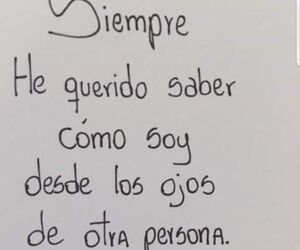 Siempre
He querido saber
cómo soy
desde los ojos
de otra persona.